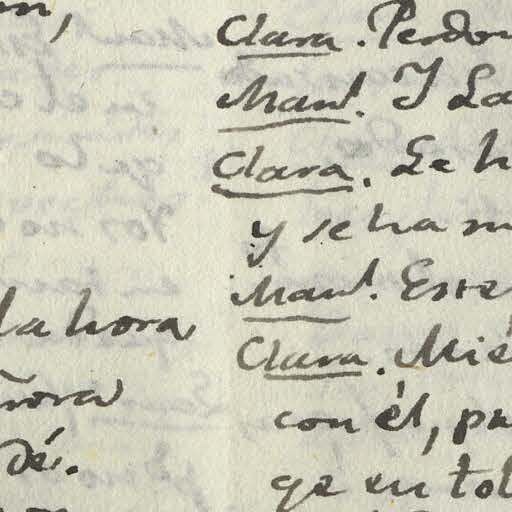 la hora
ñora
dé.
Clara. Perdon
Manl. Y La
Clara. Le h
y se ha m
Manl. Este
Clara. Mié
con él, pu
qe en tol